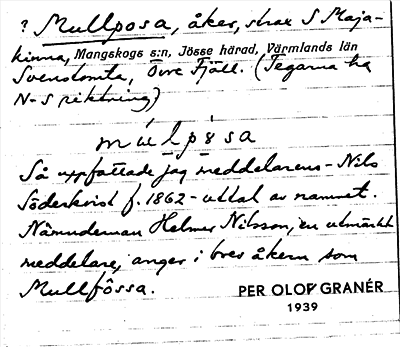 ? Mullposa, åker, strax S Maja-
kinna, Mangskogs s:n, Jösse härad, Värmlands län
Svenstomta, Övre Fjäll. (Tegarna ha
N-S riktning)
Så uppfattade jag meddelarens - Nils
Söderkvist f. 1862 - uttal av namnet.
Nämndeman Helmer Nilsson, en utmärkt
meddelare, anger i brev åkern som
Mullfôssa.
PER OLOF GRANÉR
1939